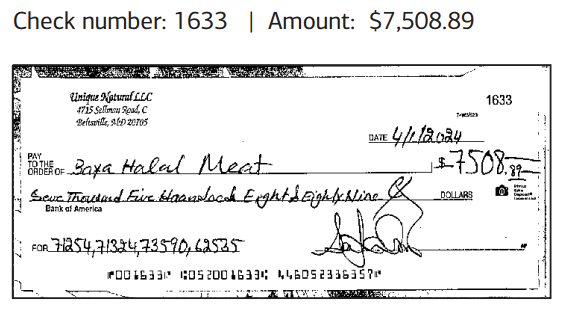 Check number: 1633 | Amount: $7,508.89
Unique Natural LLC
4715 Sellman Road, C
Beltsville, MD 20705
1633
DATE 4/1/2024
PAY TO THE ORDER OF Baxa Halal Meat $ 7508.89
Seve Thousand Five Haandoced Eight & Eighty Nine DOLLARS
Bank of America
FOR 71254, 71324, 73590, 62535
⑈001633⑈ ⑆052001633⑆ 446052336357⑈